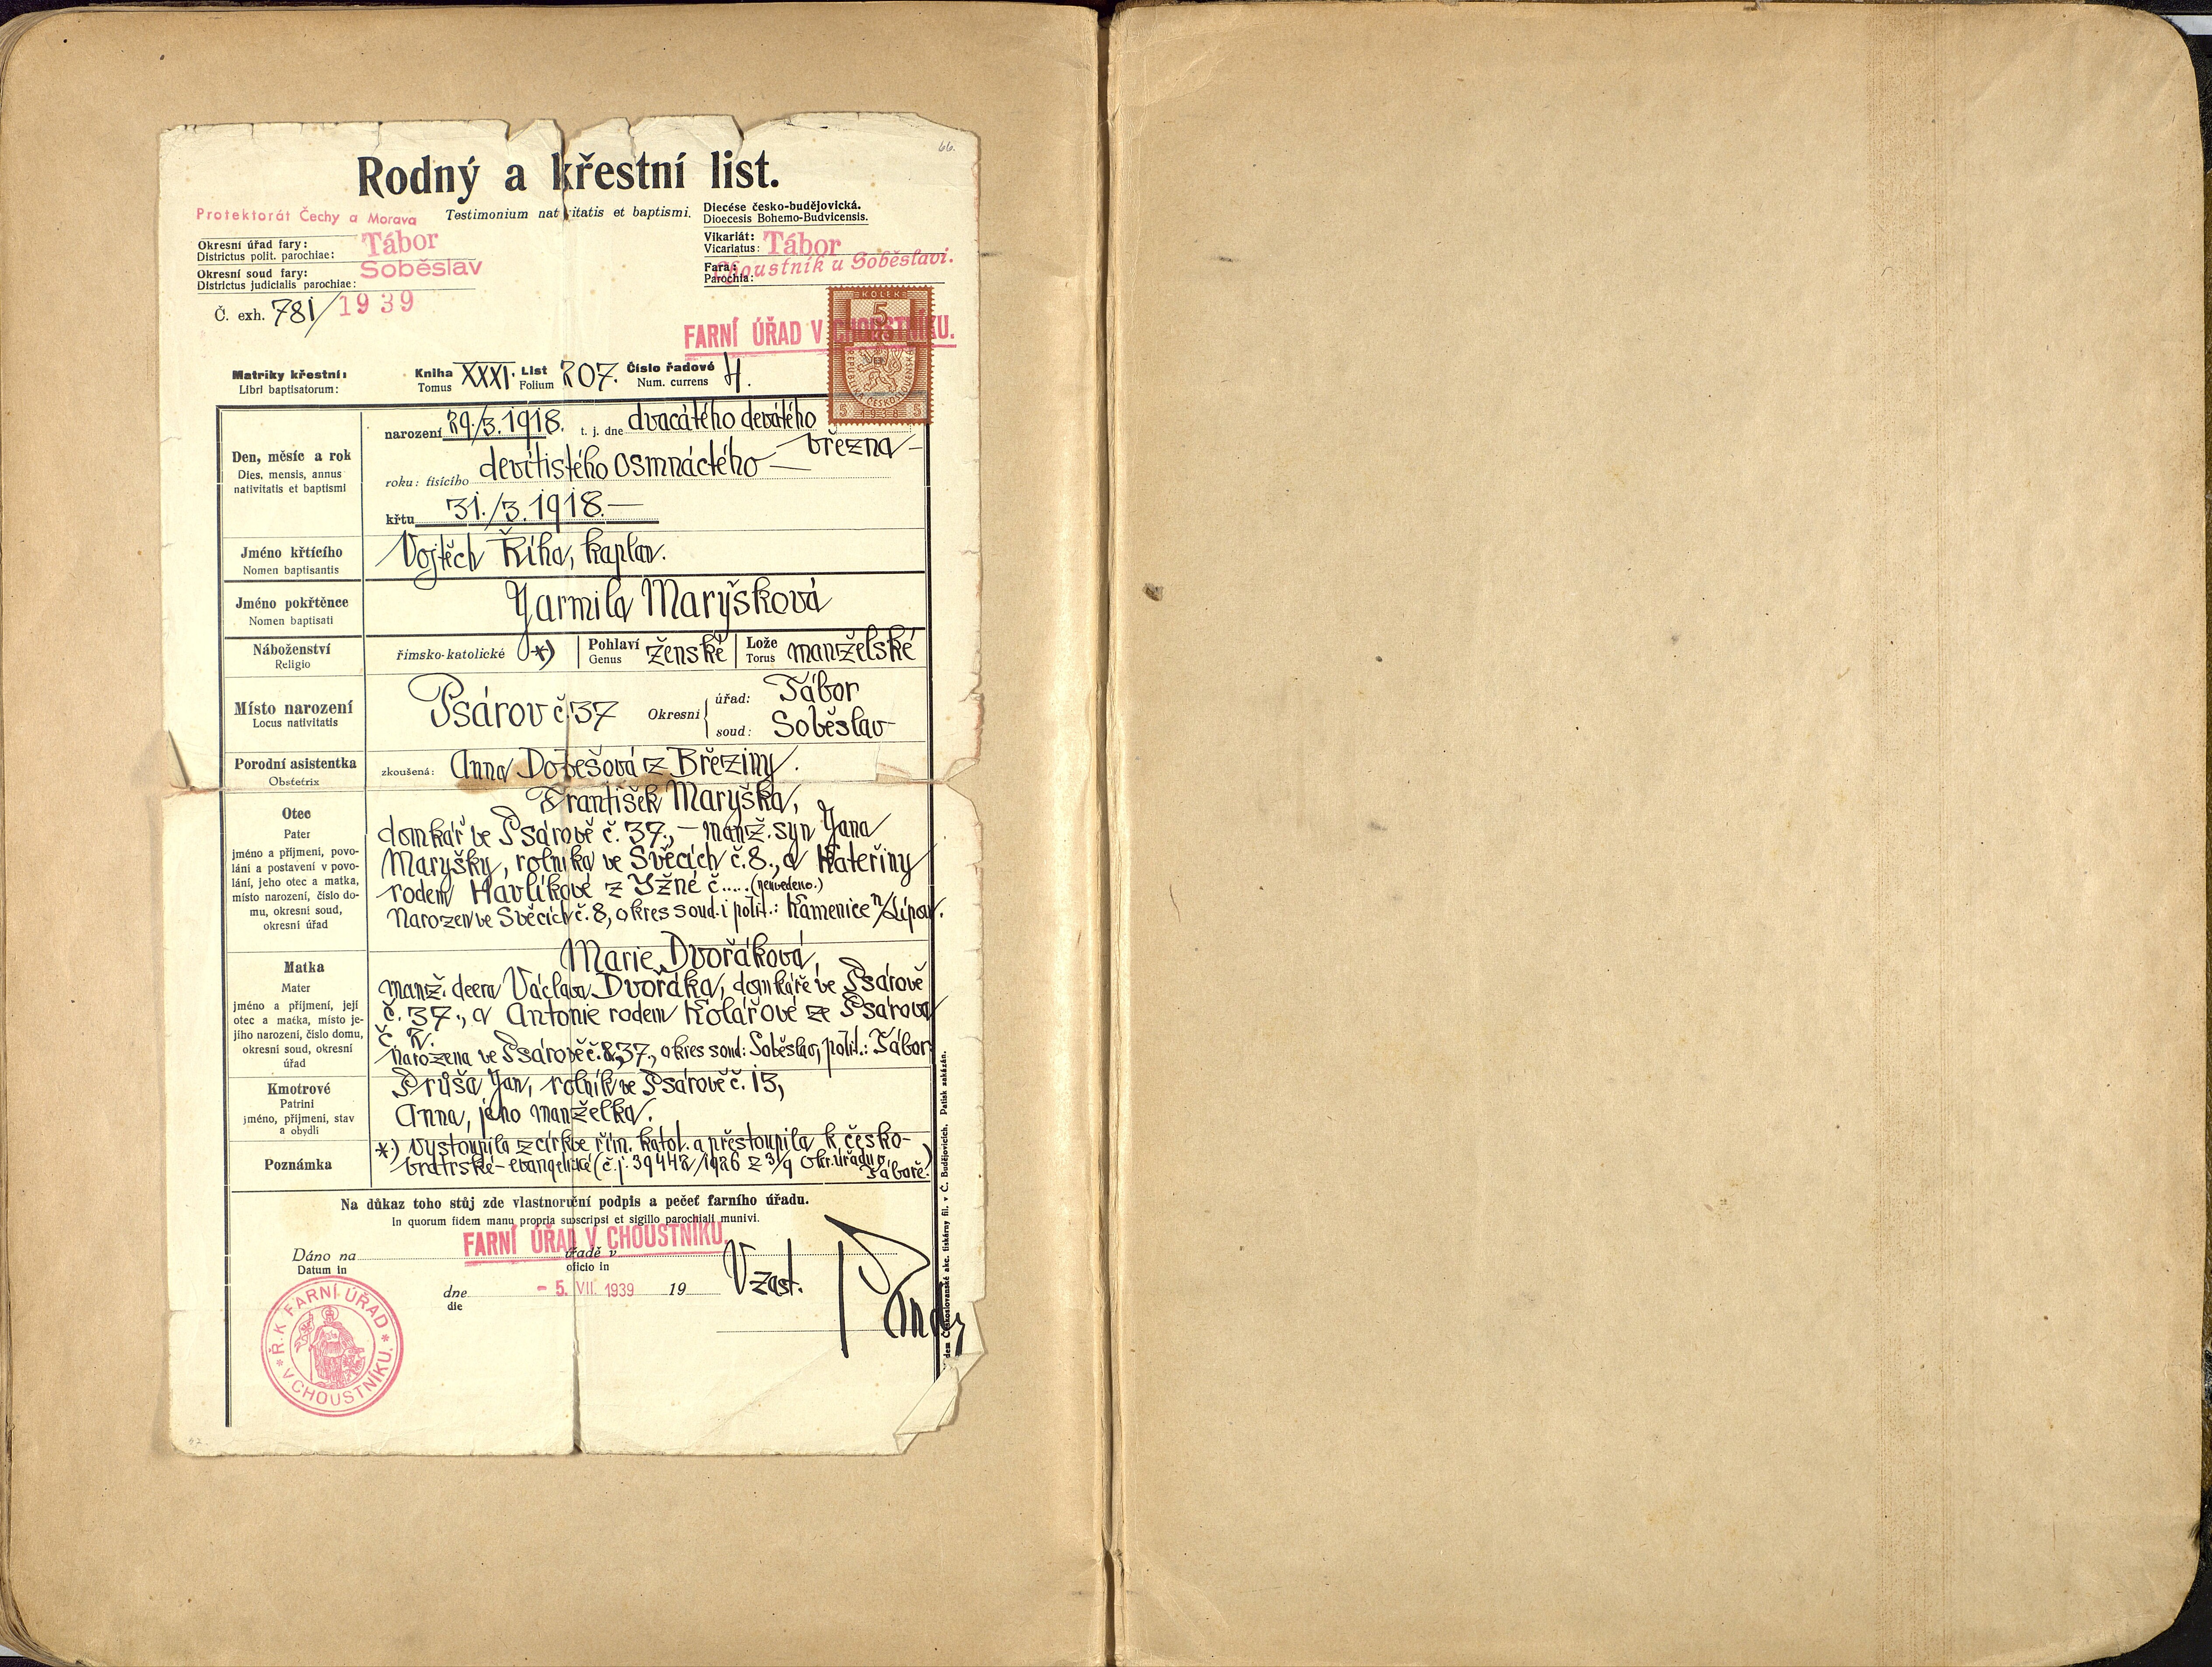 66.
Rodný a křestní list.
Protektorát Čechy a Morava
Testimonium nativitatis et baptismi.
Diecése česko-budějovická.
Dioecesis Bohemo-Budvicensis.
Okresní úřad fary: Tábor
Districtus polit. parochiae:
Vikariát: Tábor
Vicariatus:
Okresní soud fary: Soběslav
Districtus judicialis parochiae:
Fara: Choustník u Soběslavi.
Parochia:
Č. exh. 781/1939
KOLEK
5
FARNÍ ÚŘAD V CHOUSTNÍKU.
REPUBLIKA ČESKOSLOVENSKÁ
5 1938 5
Matriky křestní: Kniha XXXI. List 207. Číslo řadové 4.
Libri baptisatorum: Tomus Folium Num. currens
Den, měsíc a rok
Dies, mensis, annus
nativitatis et baptismi
narození 29./3. 1918. t. j. dne dvacátého devátého
března –
roku: tisícího devítistého osmnáctého —
křtu 31./3. 1918. —
Jméno křtícího
Nomen baptisantis
Vojtěch Říha, kaplan.
Jméno pokřtěnce
Nomen baptisati
Jarmila Maryšková
Náboženství
Religio
římsko-katolické *)
Pohlaví ženské
Genus
Lože manželské
Torus
Místo narození
Locus nativitatis
Psárov č. 37
Okresní
úřad: Tábor
soud: Soběslav
Porodní asistentka
Obstetrix
zkoušená: Anna Dobešová z Březiny.
Otec
Pater
jméno a příjmení, povo-
lání a postavení v povo-
lání, jeho otec a matka,
místo narození, číslo do-
mu, okresní soud,
okresní úřad
František Maryška,
domkář ve Psárově č. 37., – manž. syn Jana
Maryšky, rolníka ve Svěcích č. 8., a Kateřiny
rodem Havlíkové z Jžné č..... (neuvedeno.)
Narozen ve Svěcích č. 8, okres soud. i polit.: Kamenice n/Lipou.
Matka
Mater
jméno a příjmení, její
otec a matka, místo je-
jího narození, číslo domu,
okresní soud, okresní
úřad
Marie Dvořáková,
manž. dcera Václava Dvořáka, domkáře ve Psárově
č. 37., a Antonie rodem Kolářové ze Psárova
č. 2.
Narozena ve Psárově č. 37., okres soud: Soběslav, polit.: Tábor
Kmotrové
Patrini
jméno, příjmení, stav
a obydlí
Průša Jan, rolník ve Psárově č. 15,
Anna, jeho manželka.
Poznámka
*) Vystoupila z církve řím. katol. a přestoupila k česko-
bratrské-evangelické (č.j. 39442/1926 z 3/9 Okr. úřadu v
Táboře.)
Na důkaz toho stůj zde vlastnoruční podpis a pečeť farního úřadu.
In quorum fidem manu propria subscripsi et sigillo parochiali munivi.
FARNÍ ÚŘAD V CHOUSTNÍKU.
Dáno na úřadě v
Datum in oficio in
dne - 5. VII. 1939 19
die
V zast.
Ř. K. FARNÍ ÚŘAD
V CHOUSTNÍKU.
Československé akc. tiskárny fil. v Č. Budějovicích. Patisk zakázán.